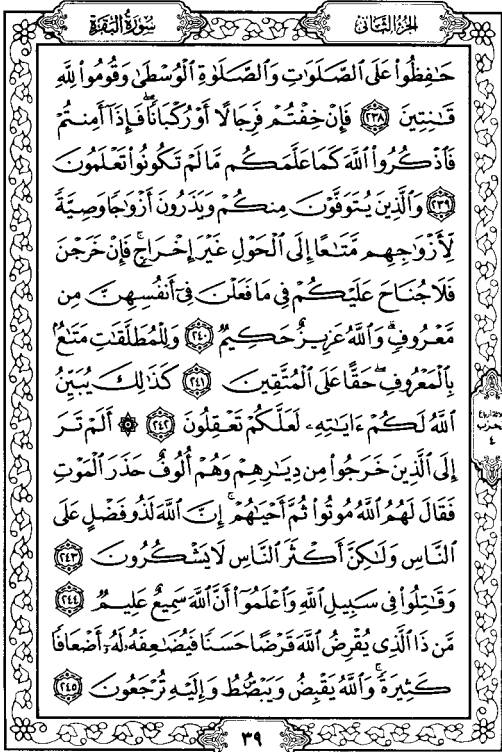 سُورَةُ البَقَرَةِ
الجُزْءُ الثَّانِي
حَٰفِظُوا۟ عَلَى ٱلصَّلَوَٰتِ وَٱلصَّلَوٰةِ ٱلْوُسْطَىٰ وَقُومُوا۟ لِلَّهِ
قَٰنِتِينَ ٢٣٨ فَإِنْ خِفْتُمْ فَرِجَالًا أَوْ رُكْبَانًا ۖ فَإِذَآ أَمِنتُمْ
فَٱذْكُرُوا۟ ٱللَّهَ كَمَا عَلَّمَكُم مَّا لَمْ تَكُونُوا۟ تَعْلَمُونَ
٢٣٩ وَٱلَّذِينَ يُتَوَفَّوْنَ مِنكُمْ وَيَذَرُونَ أَزْوَٰجًا وَصِيَّةً
لِّأَزْوَٰجِهِم مَّتَٰعًا إِلَى ٱلْحَوْلِ غَيْرَ إِخْرَاجٍ ۚ فَإِنْ خَرَجْنَ
فَلَا جُنَاحَ عَلَيْكُمْ فِى مَا فَعَلْنَ فِىٓ أَنفُسِهِنَّ مِن
مَّعْرُوفٍ ۗ وَٱللَّهُ عَزِيزٌ حَكِيمٌ ٢٤٠ وَلِلْمُطَلَّقَٰتِ مَتَٰعٌۢ
بِٱلْمَعْرُوفِ ۖ حَقًّا عَلَى ٱلْمُتَّقِينَ ٢٤١ كَذَٰلِكَ يُبَيِّنُ
ٱللَّهُ لَكُمْ ءَايَٰتِهِۦ لَعَلَّكُمْ تَعْقِلُونَ ٢٤٢ ۞ أَلَمْ تَرَ
إِلَى ٱلَّذِينَ خَرَجُوا۟ مِن دِيَٰرِهِمْ وَهُمْ أُلُوفٌ حَذَرَ ٱلْمَوْتِ
فَقَالَ لَهُمُ ٱللَّهُ مُوتُوا۟ ثُمَّ أَحْيَٰهُمْ ۚ إِنَّ ٱللَّهَ لَذُو فَضْلٍ عَلَى
ٱلنَّاسِ وَلَٰكِنَّ أَكْثَرَ ٱلنَّاسِ لَا يَشْكُرُونَ ٢٤٣
وَقَٰتِلُوا۟ فِى سَبِيلِ ٱللَّهِ وَٱعْلَمُوٓا۟ أَنَّ ٱللَّهَ سَمِيعٌ عَلِيمٌ ٢٤٤
مَّن ذَا ٱلَّذِى يُقْرِضُ ٱللَّهَ قَرْضًا حَسَنًا فَيُضَٰعِفَهُۥ لَهُۥٓ أَضْعَافًا
كَثِيرَةً ۚ وَٱللَّهُ يَقْبِضُ وَيَبْصُۜطُ وَإِلَيْهِ تُرْجَعُونَ ٢٤٥
حزب
٤
٣٩